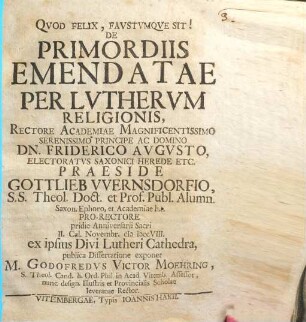 3.
QVOD FELIX, FAVSTVMQVE SIT!
DE
PRIMORDIIS
EMENDATAE
PER LVTHERVM
RELIGIONIS,
RECTORE ACADEMIAE MAGNIFICENTISSIMO
SERENISSIMO PRINCIPE AC DOMINO
DN. FRIDERICO AVGVSTO,
ELECTORATVS SAXONICI HEREDE ETC.
PRAESIDE
GOTTLIEB VVERNSDORFIO,
S.S. Theol. Doct. et Prof. Publ. Alumn.
Saxon. Ephoro, et Academiae h.
PRO-RECTORE
pridie Anniversarii Sacri
II. Cal. Novembr. MDCCVIII.
ex ipsius Divi Lutheri Cathedra,
publica Dissertatione exponet
M. GODOFREDVS VICTOR MOEHRING,
S. Theol. Cand. & Ord. Phil. in Acad. Vitemb. Assessor,
nunc design. Illustris et Provincialis Scholae
Jeveranae Rector.
VITEMBERGAE, Typis IOANNIS HAKII.